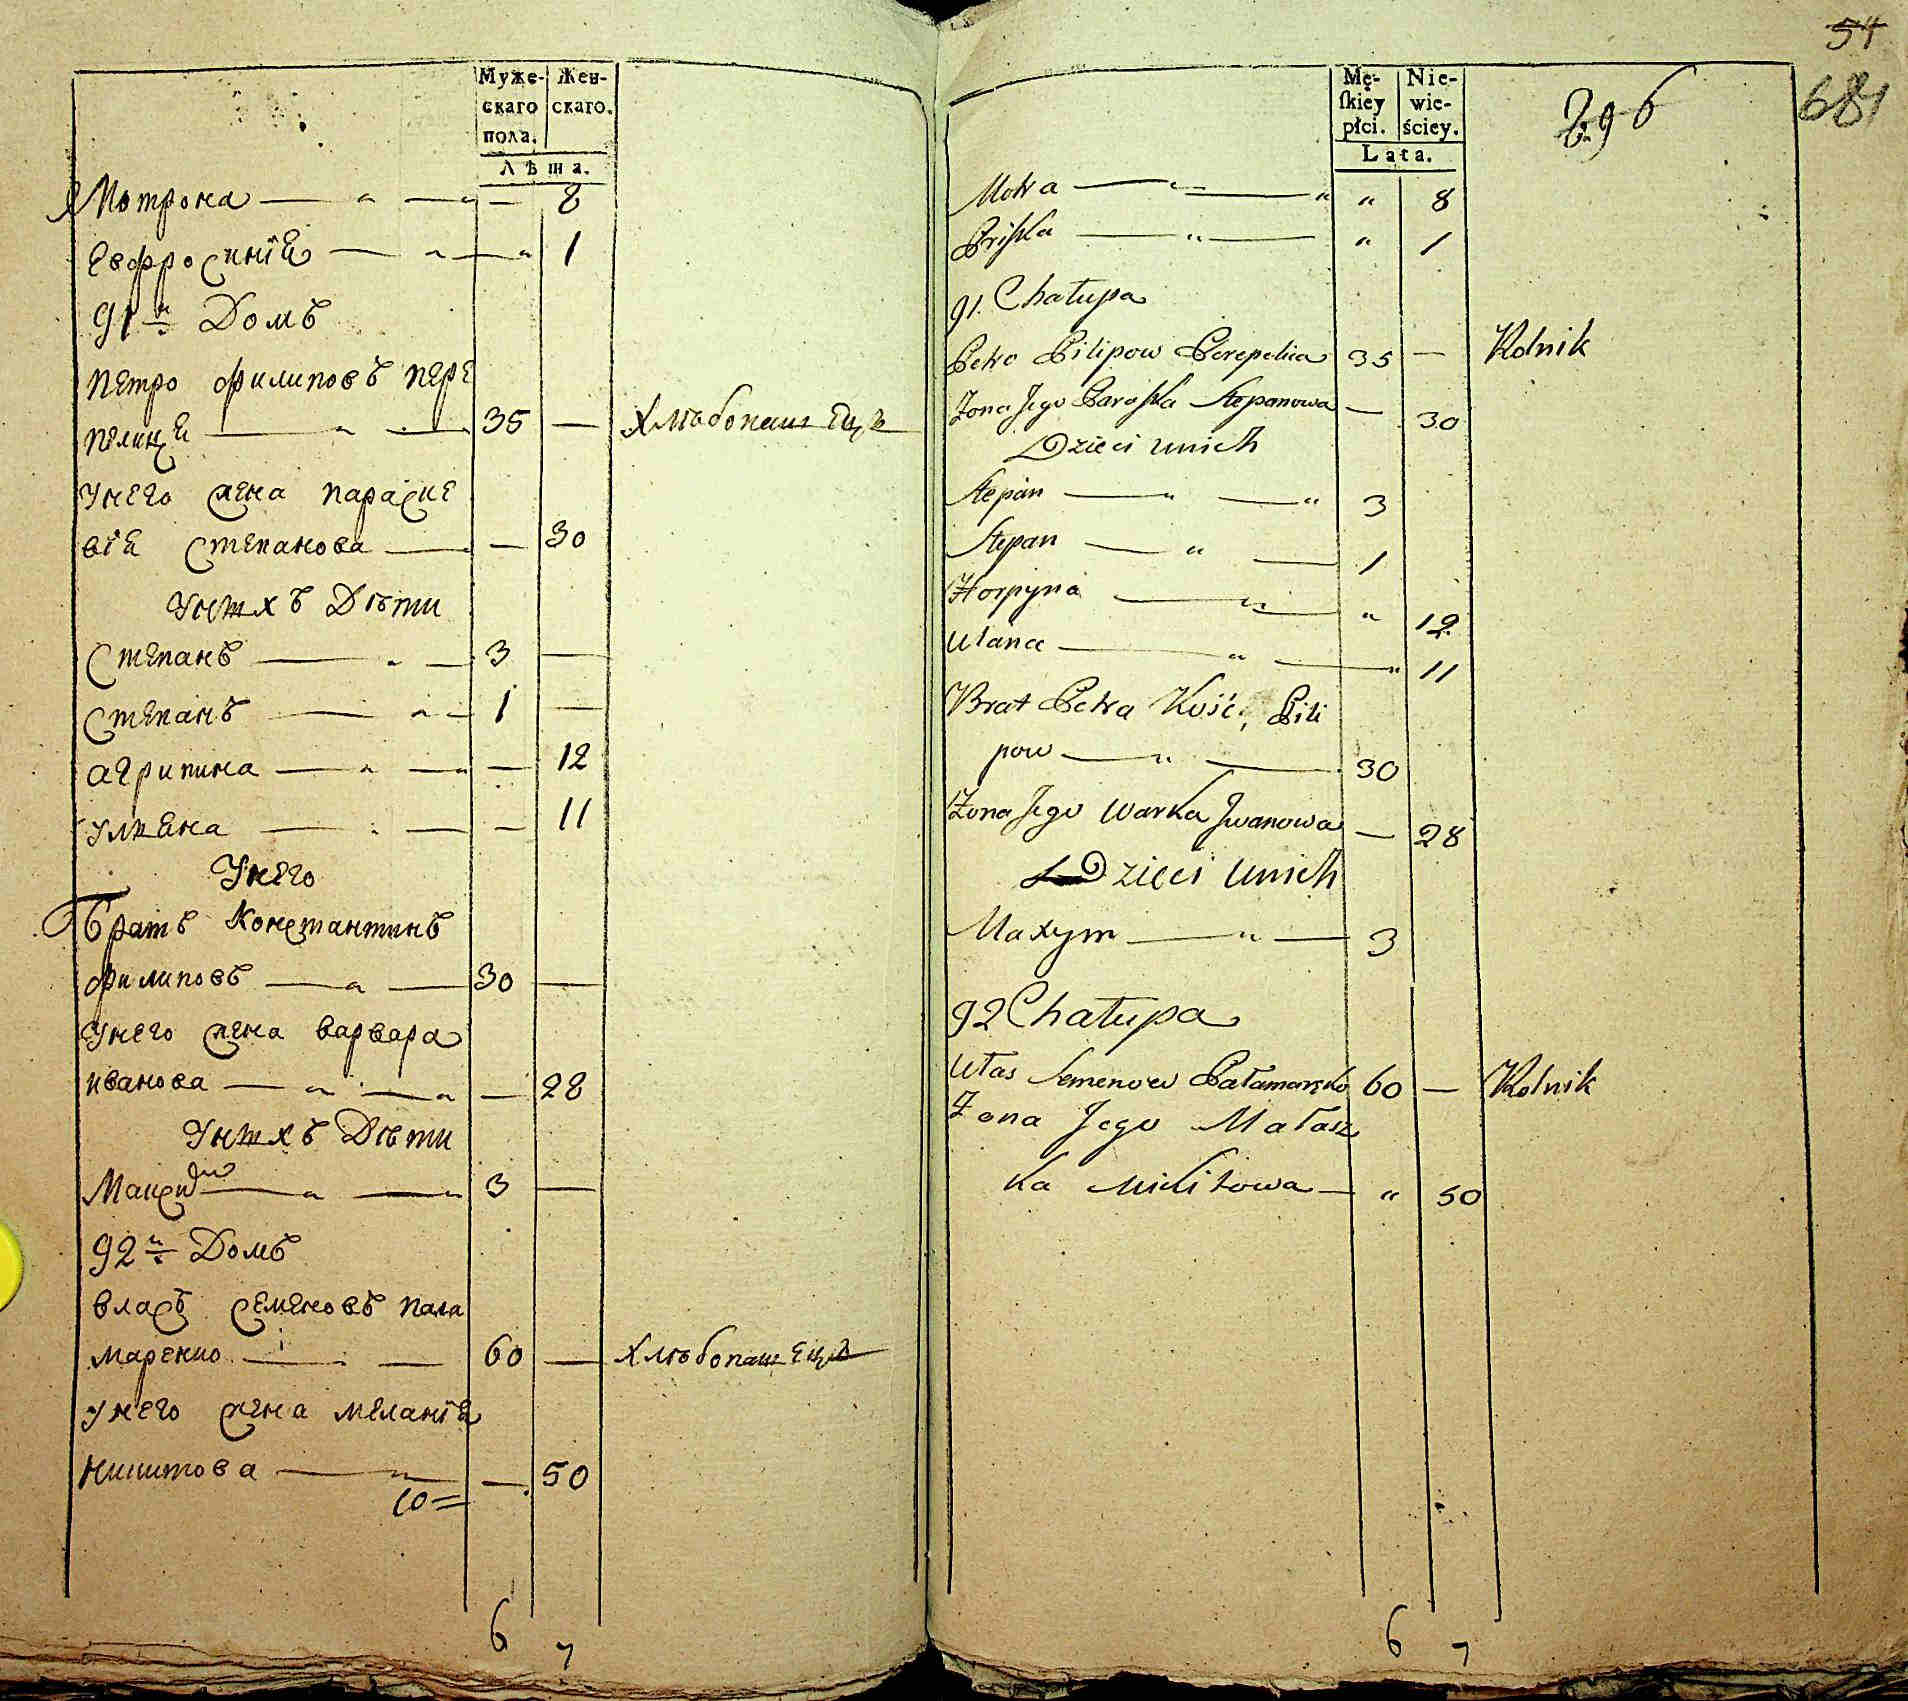 Муже-
скаго
пола.
Жен-
скаго.
Лѣта.
Мотрона — „ — „ — 8
Евфросинїѧ — „ — „ 1
91й Домъ
Петро Филиповъ пере
пелицѧ — „ — 35 — Хлѣбопашецъ
Унего жена параске
вїѧ Степанова — — 30
Унихъ Дѣти
Степанъ — „ — 3 —
Степанъ — „ — 1 —
агрипина — „ — „ — 12
улиѧна — „ — — 11
Унего
Братъ Константинъ
филиповъ — „ — 30 —
Унего жена варвара
иванова — „ — „ — 28
Унихъ Дѣти
Максим — „ — „ 3 —
92й Домъ
власъ семеновъ пала
маренко — — 60 — Хлѣбопашецъ
Унего жена меланїѧ
никитова — „ — 50
10=
6 7
54
681
296
Mę-
ſkiey
płci.
Nie-
wie-
ściey.
Lata.
Motra — „ — „ „ 8
Priſka — „ — „ 1
91. Chałupa
Petro Pilipow Perepelica 35 — Rolnik
Zona Jego Paraſka Stepanowa — 30
Dzieci unich
Stepan — „ — „ 3
Stepan — „ — 1
Horpyna — „ — „ 12
Ulana — „ — „ 11
Brat Petra Kość, Pili
pow — „ — 30
Zona Jego Warka Jwanowa — 28
Dzieci unich
Maxym — „ — 3
92 Chałupa
Ułas Semenow Pałamarenko 60 — Rolnik
Zona Jego Małasz
ka Mikitowa — „ 50
6 7